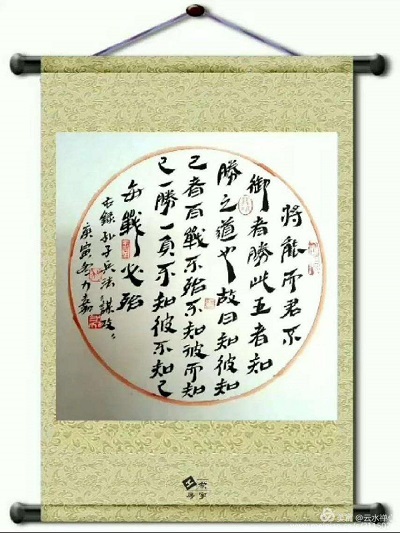 将能而君不
御者勝此五者知
勝之道也故曰知彼知
己者百戰不殆不知彼而知
己一勝一負不知彼不知己
每戰必殆
右錄孙子兵法謀攻
庚寅
美篇 @云水禅